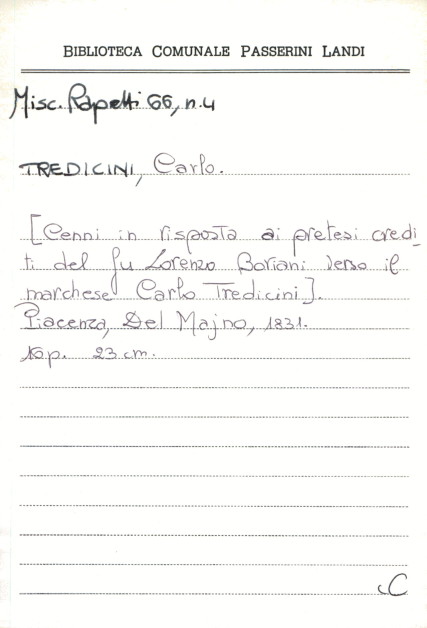 BIBLIOTECA COMUNALE PASSERINI LANDI
Misc. Rapetti 66, n. 4
TREDICINI, Carlo.
[Cenni in risposta ai pretesi credi_
ti del fu Lorenzo Boriani verso il
marchese Carlo Tredicini].
Piacenza, Del Majno, 1831.
10 p. 23 cm.
C